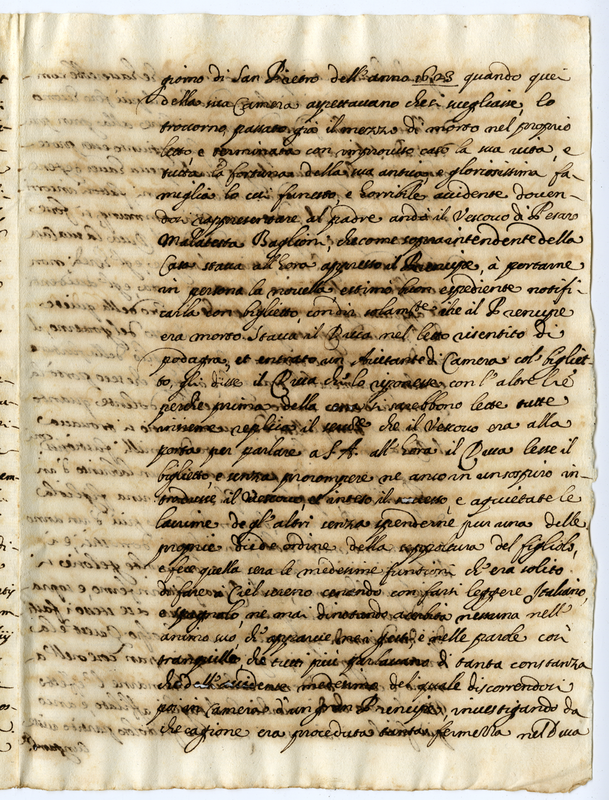 giorno di San Pietro dell'anno 1623 quando quei
della sua Camera aspettavano che si svegliasse, lo
trovorno passato già il mezzo dì morto nel proprio
letto e terminata con improviso caso la sua vita, e
tutta la fortuna della sua antica, e gloriosissima fa-
miglia lo cui funesto, e horribile accidente doven-
dosi rappresentare al Padre andò il Vescovo di Pesaro
Malatesta Baglioni, che come sopraintendente della
Casa stava all'hora appresso il Prencipe, à portarne
in persona la novella estimò buon espediente notifi-
carla con biglietto, con dir solamte che il Prencipe
era morto. Stava il Duca nel letto risentito di
podagra, et entrato un Aiutante di Camera col' bigliet-
to, gli disse il Duca che lo riponesse con l'altre
perche prima della sarebbono lette tutte
insieme replicò il che il Vescovo era alla
porta per parlare a S. A. all'hora il Duca lesse il
biglietto e senza prorompere ne anco in un sospiro in-
trodusse il Vescovo, et inteso il successo e aquietate le
lacrime degl'altri senza spenderne pur una delle
proprie diede ordine della sepoltura del figliolo,
e fece quella sera le medesime funtioni ch'era solito
di fare a Ciel sereno cenando con farsi leggere Italiano,
e spagnolo ne mai dinotando acerbità nessuna nell'
animo suo ch'apparve ne gesti, e nelle parole così
tranquillo che tutti più parlavano di tanta constanza
che dell'accidente medesimo del quale discorrendosi
poi in Camera d'un gran Prencipe, investigando da
che cagione era proceduta tanta fermezza nel Duca